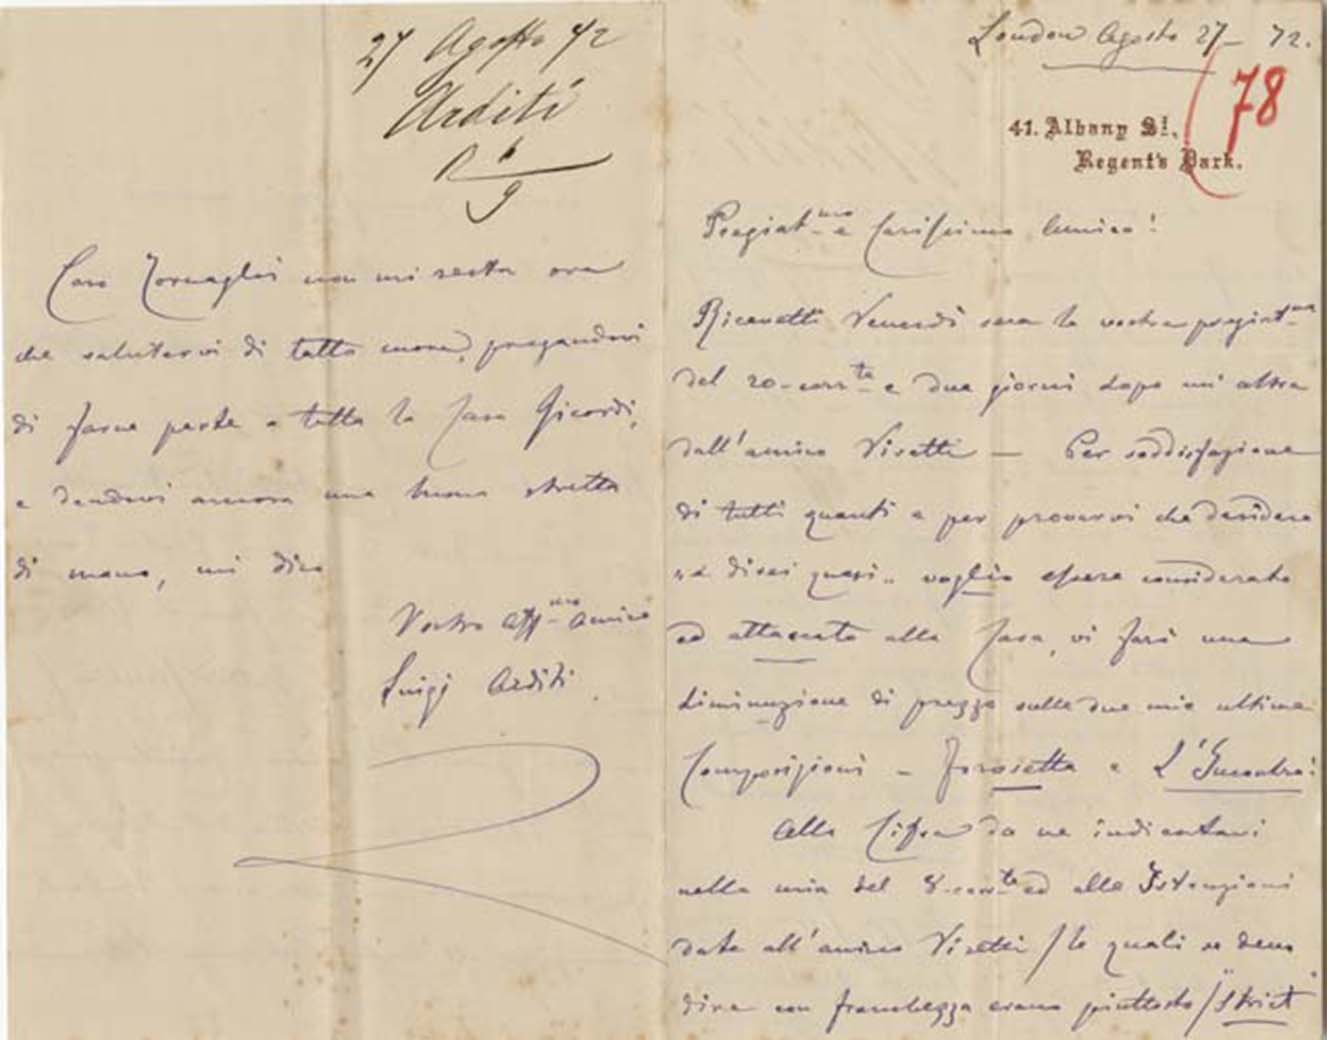 27 Agosto 72
Arditi
R 6/9
Caro Tornaghi non mi resta ora
che salutarvi di tutto cuore, pregandovi
di farne parte a tutta la Casa Ricordi,
e dandovi ancora una buona stretta
di mano, mi dico
Vostro aff.mo amico
Luigi Arditi.
London Agosto 27 – 72.
78
41. Albany St.,
Regent's Park.
Pregiat.mo e Carissimo Amico!
Ricevetti Venerdì sera la vostra pregiat.ma
del 20-corr.te e due giorni dopo un'altra
dall'amico Viretti — Per soddisfazione
di tutti quanti e per provarvi che desidero
e direi quasi.. voglio essere considerato
ed attaccato alla Casa, vi farò una
diminuzione di prezzo sulle due mie ultime
Composizioni – Forosetta e L'Incontro!
Alla Cifra da me indicatavi
nella mia del 8-corr.te ed alle Istruzioni
date all'amico Viretti / le quali se devo
dire con franchezza erano piuttosto / "strict"